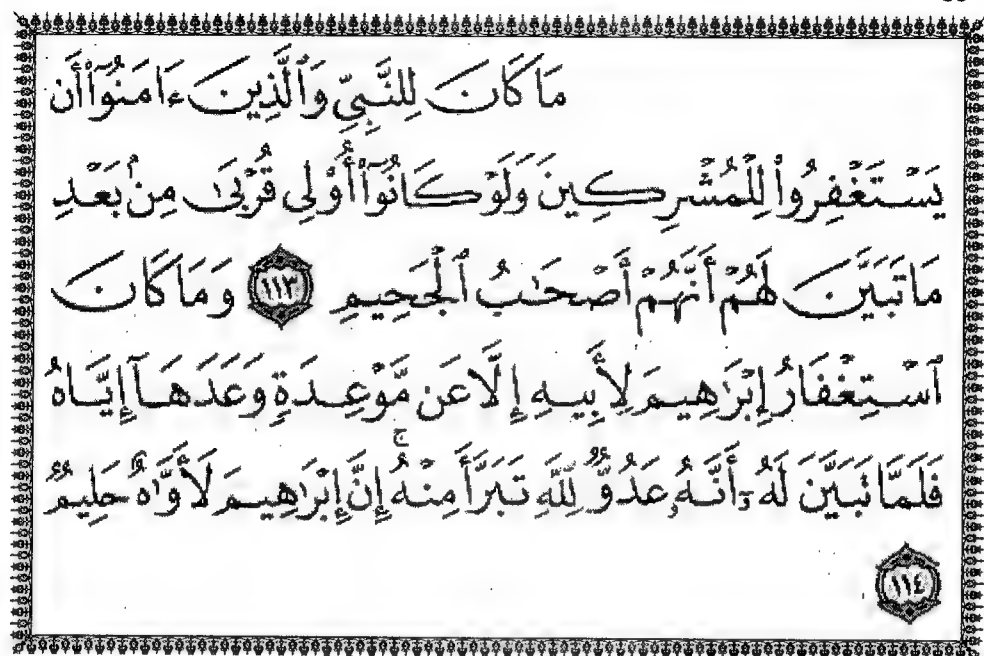 مَا كَانَ لِلنَّبِيِّ وَٱلَّذِينَ ءَامَنُوٓا۟ أَن
يَسْتَغْفِرُوا۟ لِلْمُشْرِكِينَ وَلَوْ كَانُوٓا۟ أُو۟لِى قُرْبَىٰ مِنۢ بَعْدِ
مَا تَبَيَّنَ لَهُمْ أَنَّهُمْ أَصْحَٰبُ ٱلْجَحِيمِ ١١٣ وَمَا كَانَ
ٱسْتِغْفَارُ إِبْرَٰهِيمَ لِأَبِيهِ إِلَّا عَن مَّوْعِدَةٍ وَعَدَهَآ إِيَّاهُ
فَلَمَّا تَبَيَّنَ لَهُۥٓ أَنَّهُۥ عَدُوٌّ لِّلَّهِ تَبَرَّأَ مِنْهُ ۚ إِنَّ إِبْرَٰهِيمَ لَأَوَّٰهٌ حَلِيمٌ
١١٤